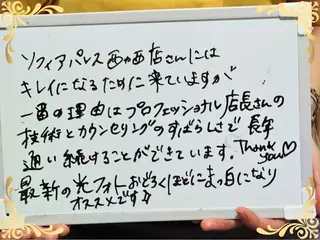 ソフィアパレス西ヶ西店さんには
キレイになるために来ていますが
一番の理由はプロフェッショナル店長さんの
技術とカウンセリングのすばらしさで長年
通い続けることができています。Thank you♡
最新の光フォトおどろくほどにまっ白になり
オススメです!!